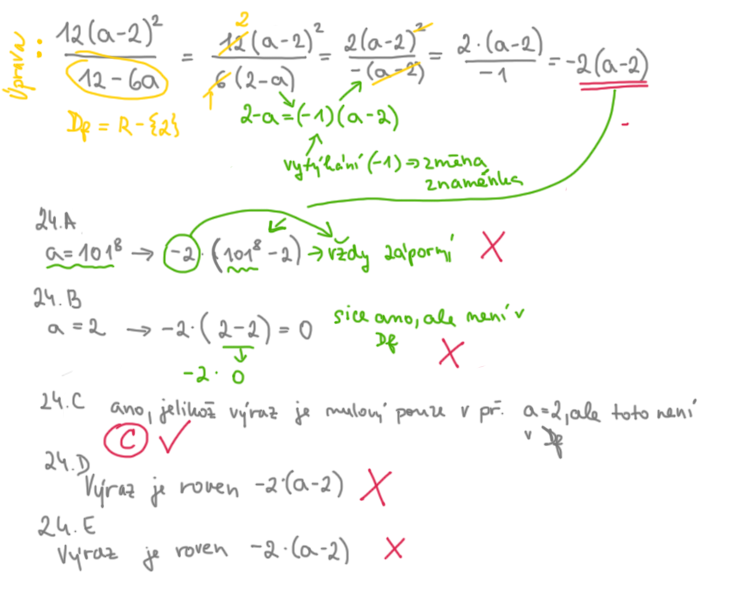 Úprava: 12(a-2)² / 12-6a = 12(a-2)² / 6(2-a) = 2(a-2)² / -(a-2) = 2·(a-2) / -1 = -2(a-2)
2
1
Df = R-{2}
2-a=(-1)(a-2)
-
vytýkání (-1) ⇒ změna
znaménka
24.A
a=101⁸ → -2·(101⁸-2) → vždy záporný X
24.B
a=2 → -2·(2-2) = 0 sice ano, ale není v
Df X
-2· 0
24.C ano, jelikož výraz je nulový pouze v př. a=2, ale toto není
v Df
C ✓
24.D
Výraz je roven -2·(a-2) X
24.E
Výraz je roven -2·(a-2) X